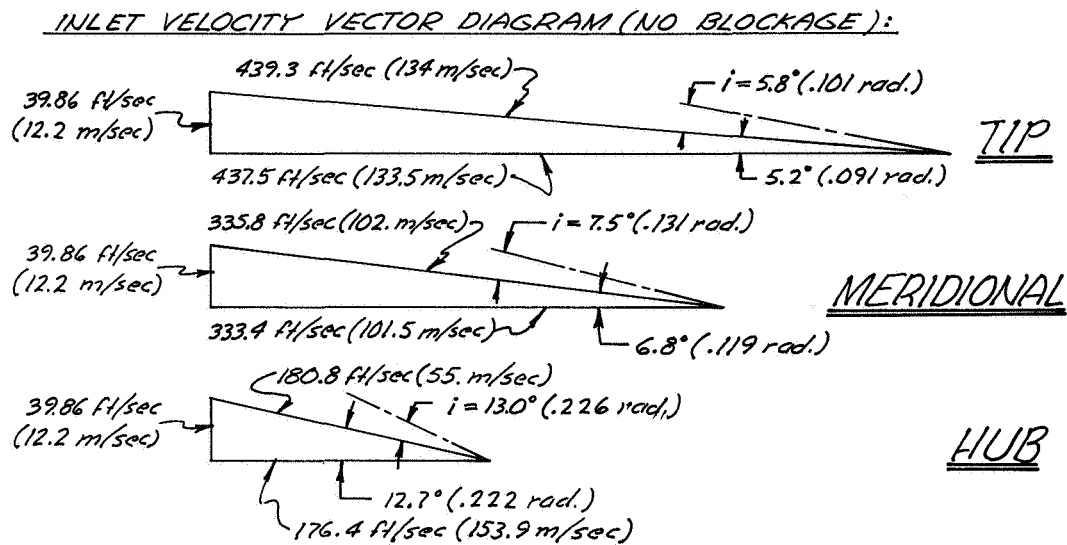 INLET VELOCITY VECTOR DIAGRAM (NO BLOCKAGE):
439.3 ft/sec (134 m/sec)
i = 5.8° (.101 rad.)
39.86 ft/sec
(12.2 m/sec)
TIP
437.5 ft/sec (133.5 m/sec)
5.2° (.091 rad.)
335.8 ft/sec (102. m/sec)
i = 7.5° (.131 rad.)
39.86 ft/sec
(12.2 m/sec)
MERIDIONAL
333.4 ft/sec (101.5 m/sec)
6.8° (.119 rad.)
180.8 ft/sec (55. m/sec)
i = 13.0° (.226 rad.)
39.86 ft/sec
(12.2 m/sec)
HUB
12.7° (.222 rad.)
176.4 ft/sec (153.9 m/sec)